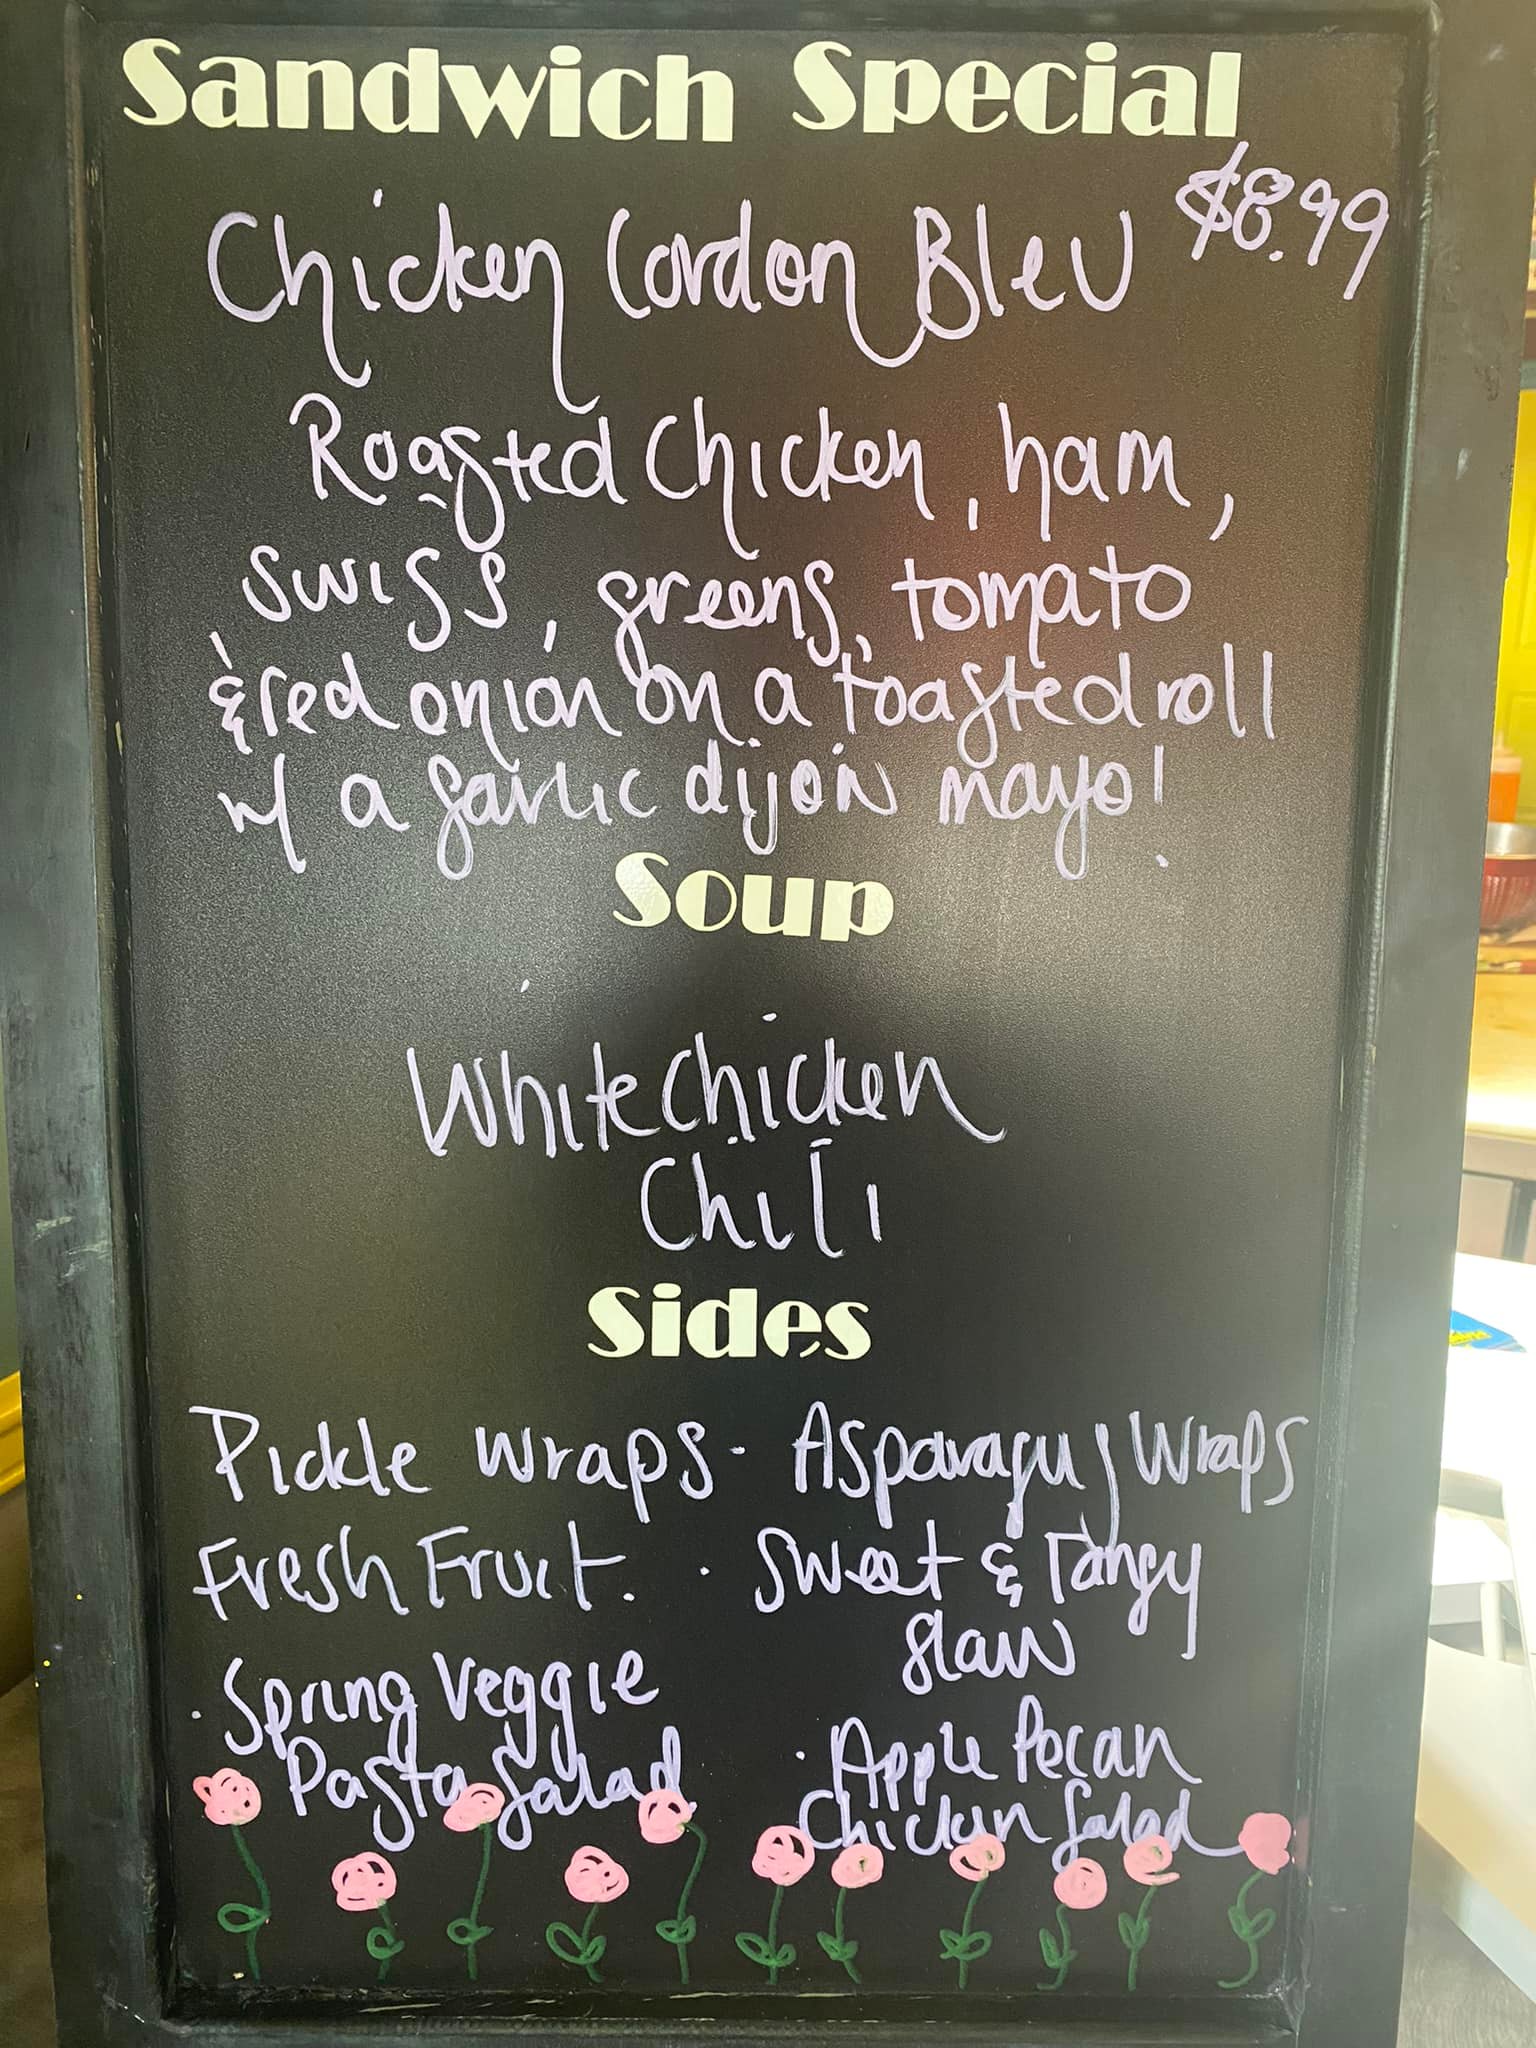 Sandwich Special
$8.99
Chicken Cordon Bleu
Roasted Chicken, ham,
swiss, greens, tomato
& red onion on a toasted roll
w/ a garlic dijon mayo!
Soup
White Chicken
Chili
Sides
Pickle Wraps · Asparagus Wraps
Fresh Fruit. · Sweet & Tangy
Slaw
· Spring Veggie
Pasta Salad
· Apple Pecan
Chicken Salad